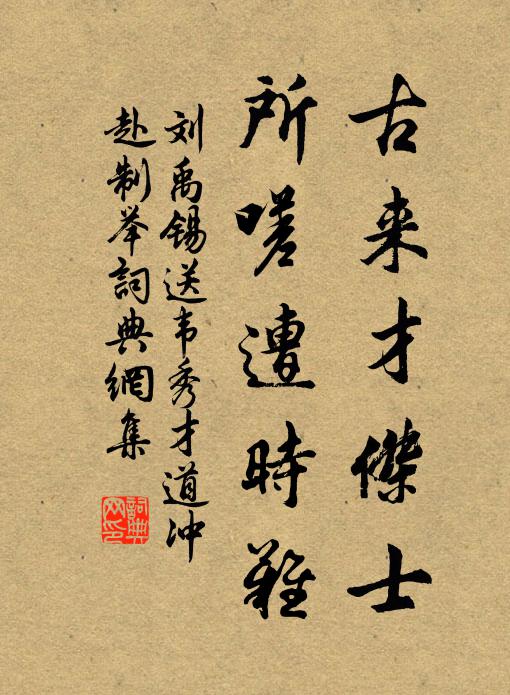 古来才傑士
所嗟遭時難
刘禹锡送韦秀才道冲
赴制举詞典網集
詞典网印